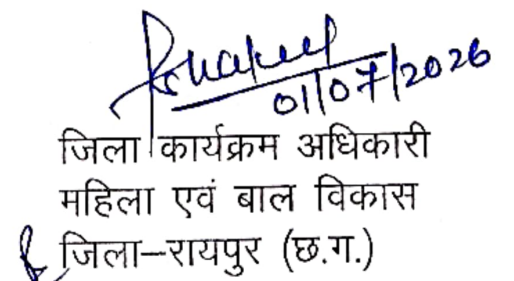 01/07/2026
जिला कार्यक्रम अधिकारी
महिला एवं बाल विकास
जिला–रायपुर (छ.ग.)